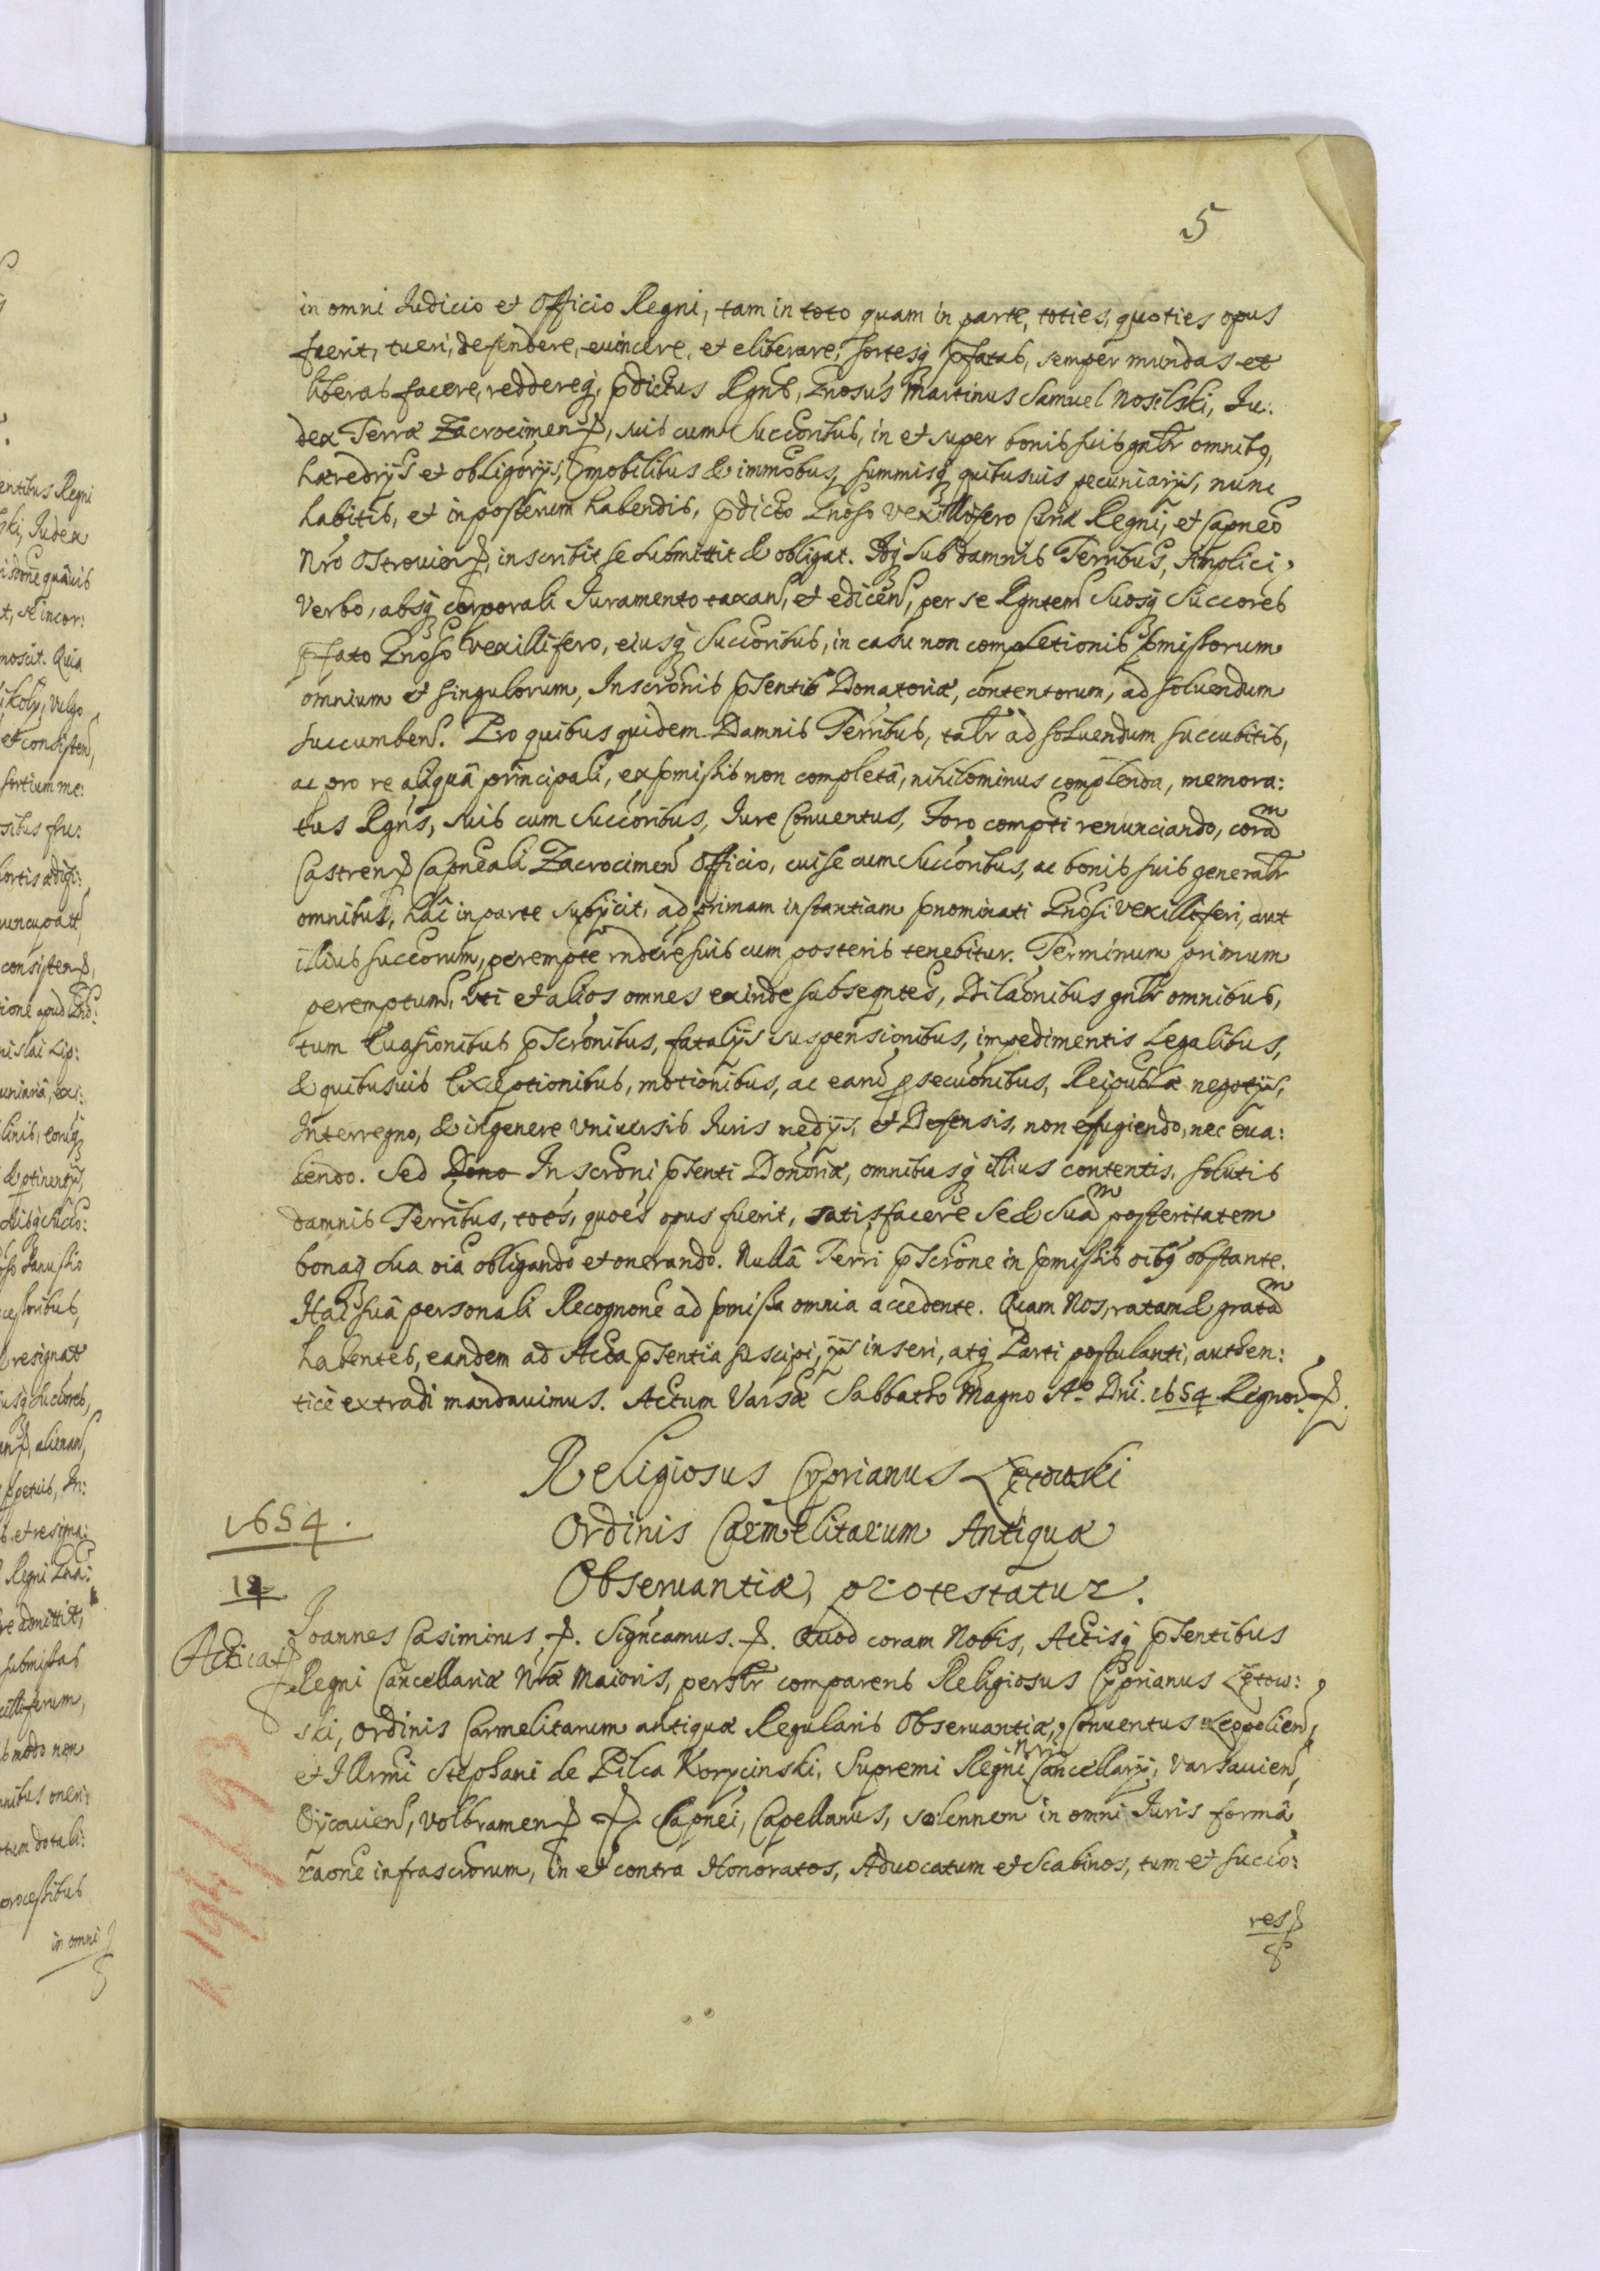 5
in omni Iudicio et Officio Regni, tam in toto quam in parte, toties, quoties opus
fuerit, tueri, defendere, evincere, et eliberare, sortesq pfatas, semper mundas et
liberas facere, reddereq, pdictus Rgns, Gnosus Martinus Samuel Nosilski, Iu:
dex Terræ Zacrocimen, suis cum Succoribus, in et super bonis suis gnlr omnibq,
hæredrijs et obligorijs, mobilibus & immobus, summisq quibusuis pecuniarijs, nunc
habitis, et inposterum habendis, pdicto Gnoso Vexillifero Curiæ Regni, et Capneo
Nro Ostrouien, inscribit se submittit & obligat. Idq sub damnis Terribus, simplici
Verbo, absq corporali Iuramento taxan, et edicen, per se Rgntem Suosq Succores
pfato Gnoso Vexillifero, eiusq Succoribus, in casu non completionis pmissorum
omnium et singulorum, Inscronis pntis Donatoriæ, contentorum, ad soluendum
succumben. Pro quibus quidem Damnis Terribus, talr ad soluendum succubitis,
ac pro re aliquâ principali, ex pmissis non completâ, nihilominus complenda, memora:
tus Rgns, suis cum Succoribus, Iure Conuentus, Foro compti renunciando, coram
Castren Capneali Zacrocimen Officio, cui se cum Succoribus, ac bonis suis generalr
omnibus, hac in parte subijcit, ad primam instantiam pnominati Gnosi Vexilliferi, aut
illius succorum, perempte rndere suis cum posteris tenebitur. Terminum primum
peremptum, uti et alios omnes exinde subseqntes, Dilaonibus gnlr omnibus,
tum Euasionibus pscronibus, fatalijs suspensionibus, impedimentis Legalibus,
& quibusuis Exceptionibus, motionibus, ac eand psecuonibus, Reipublæ negotijs,
Interregno, & in genere Vniuersis Iuris medijs, et Defensis, non efugiendo, nec eua:
dendo. Sed Dono Inscroni pnti Donoriæ, omnibusq illius contentis, solutis
damnis Terribus, toes, quoes opus fuerit, satisfacere Se & Suam posteritatem
bonaq sua oia obligando et onerando. Nullâ Terri pscrione in pmissis oibq obstante.
Hac suâ personali Recognone ad pmissa omnia accedente. Quam Nos, ratam & gratam
habentes, eandem ad Acta pntia suscipi, ijs inseri, atq Parti postulanti, authen:
ticè extradi mandauimus. Actum Varsæ Sabbatho Magno Ao Dni. 1654 Regnor
Religiosus Cyprianus Lętowski
1654.
Ordinis Carmelitarum Antiquæ
Obseruantiæ, protestatur.
Ioannes Casimirus. Signcamus. Quod coram Nobis, Actisq pntibus
Regni Cancellariæ Nræ Maioris, persnlr comparens Religiosus Cyprianus Lętow:
ski, Ordinis Carmelitarum antiquæ Regularis Obseruantiæ, Conuentus Leopolien,
et Illrmi Stephani de Pilca Korycinski, Supremi Regni Nri Cancellarij, Varsauien,
Oycouien, Volbramen Capnei, Capellanus, solennem in omni Iuris formâ
raone infrascrorum, in et contra Honoratos, Aduocatum et Scabinos, tum et succo:
res